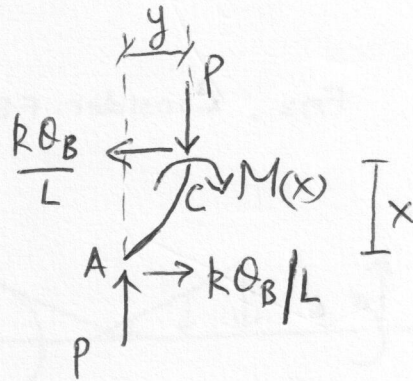 y
P
kθ_B/L
C
M(x)
x
A
kθ_B/L
P